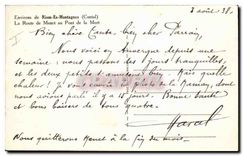 Environs de Riom-ès-Montagnes (Cantal)
La Route de Menet au Pont de la Mort
3 août 38.
Bien chère tante, bien cher Parrain,
Nous voici en Auvergne depuis une
semaine; nous passons des jours tranquilles
et les deux petits s'amusent bien. Mais quelle
chaleur! j'ai de la Ramier, dont
nous avions parlé il y a 15 jours. Bonne santé
et bons baisers de tous quatre.
Marcel
Nous quitterons Menet à la fin du mois.